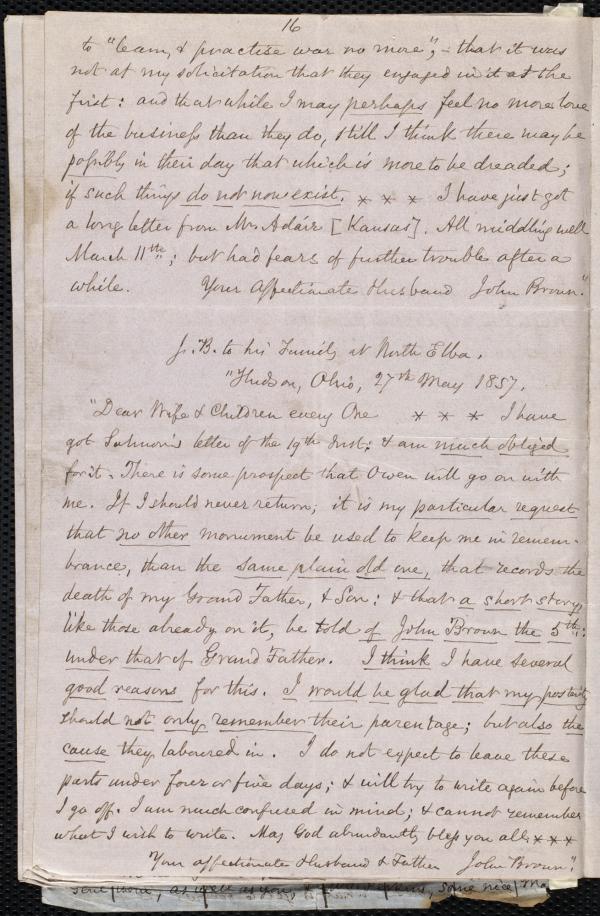 16
to "learn, & practise war no more"; - that it was
not at my solicitation that they engaged in it at the
first: and that while I may perhaps feel no more love
of the business than they do, still I think there may be
possibly in their day that which is more to be dreaded;
if such things do not now exist. * * * I have just got
a long letter from Mr. Adair [Kansas]. All middling well
March 11th; but had fears of further trouble after a
while. Your Affectionate Husband John Brown".
J. B. to his Family at North Elba.
"Hudson, Ohio, 27th May 1857.
"Dear Wife & Children every One * * * I have
got Salmon's letter of the 19th Inst: & am much obliged
for it. There is some prospect that Owen will go on with
me. If I should never return; it is my particular request
that no other monument be used to keep me in remem-
brance, than the same plain old one, that records the
death of my Grand Father, & Son: & that a short story,
like those already on it, be told of John Brown the 5th:
under that of Grand Father. I think I have several
good reasons for this. I would be glad that my posterity
should not only remember their parentage; but also the
cause they laboured in. I do not expect to leave these
parts under four or five days; & will try to write again before
I go off. I am much confused in mind; & cannot remember
what I wish to write. May God abundantly bless you all * * *
Your affectionate Husband & Father John Brown".
as well as you, some nice